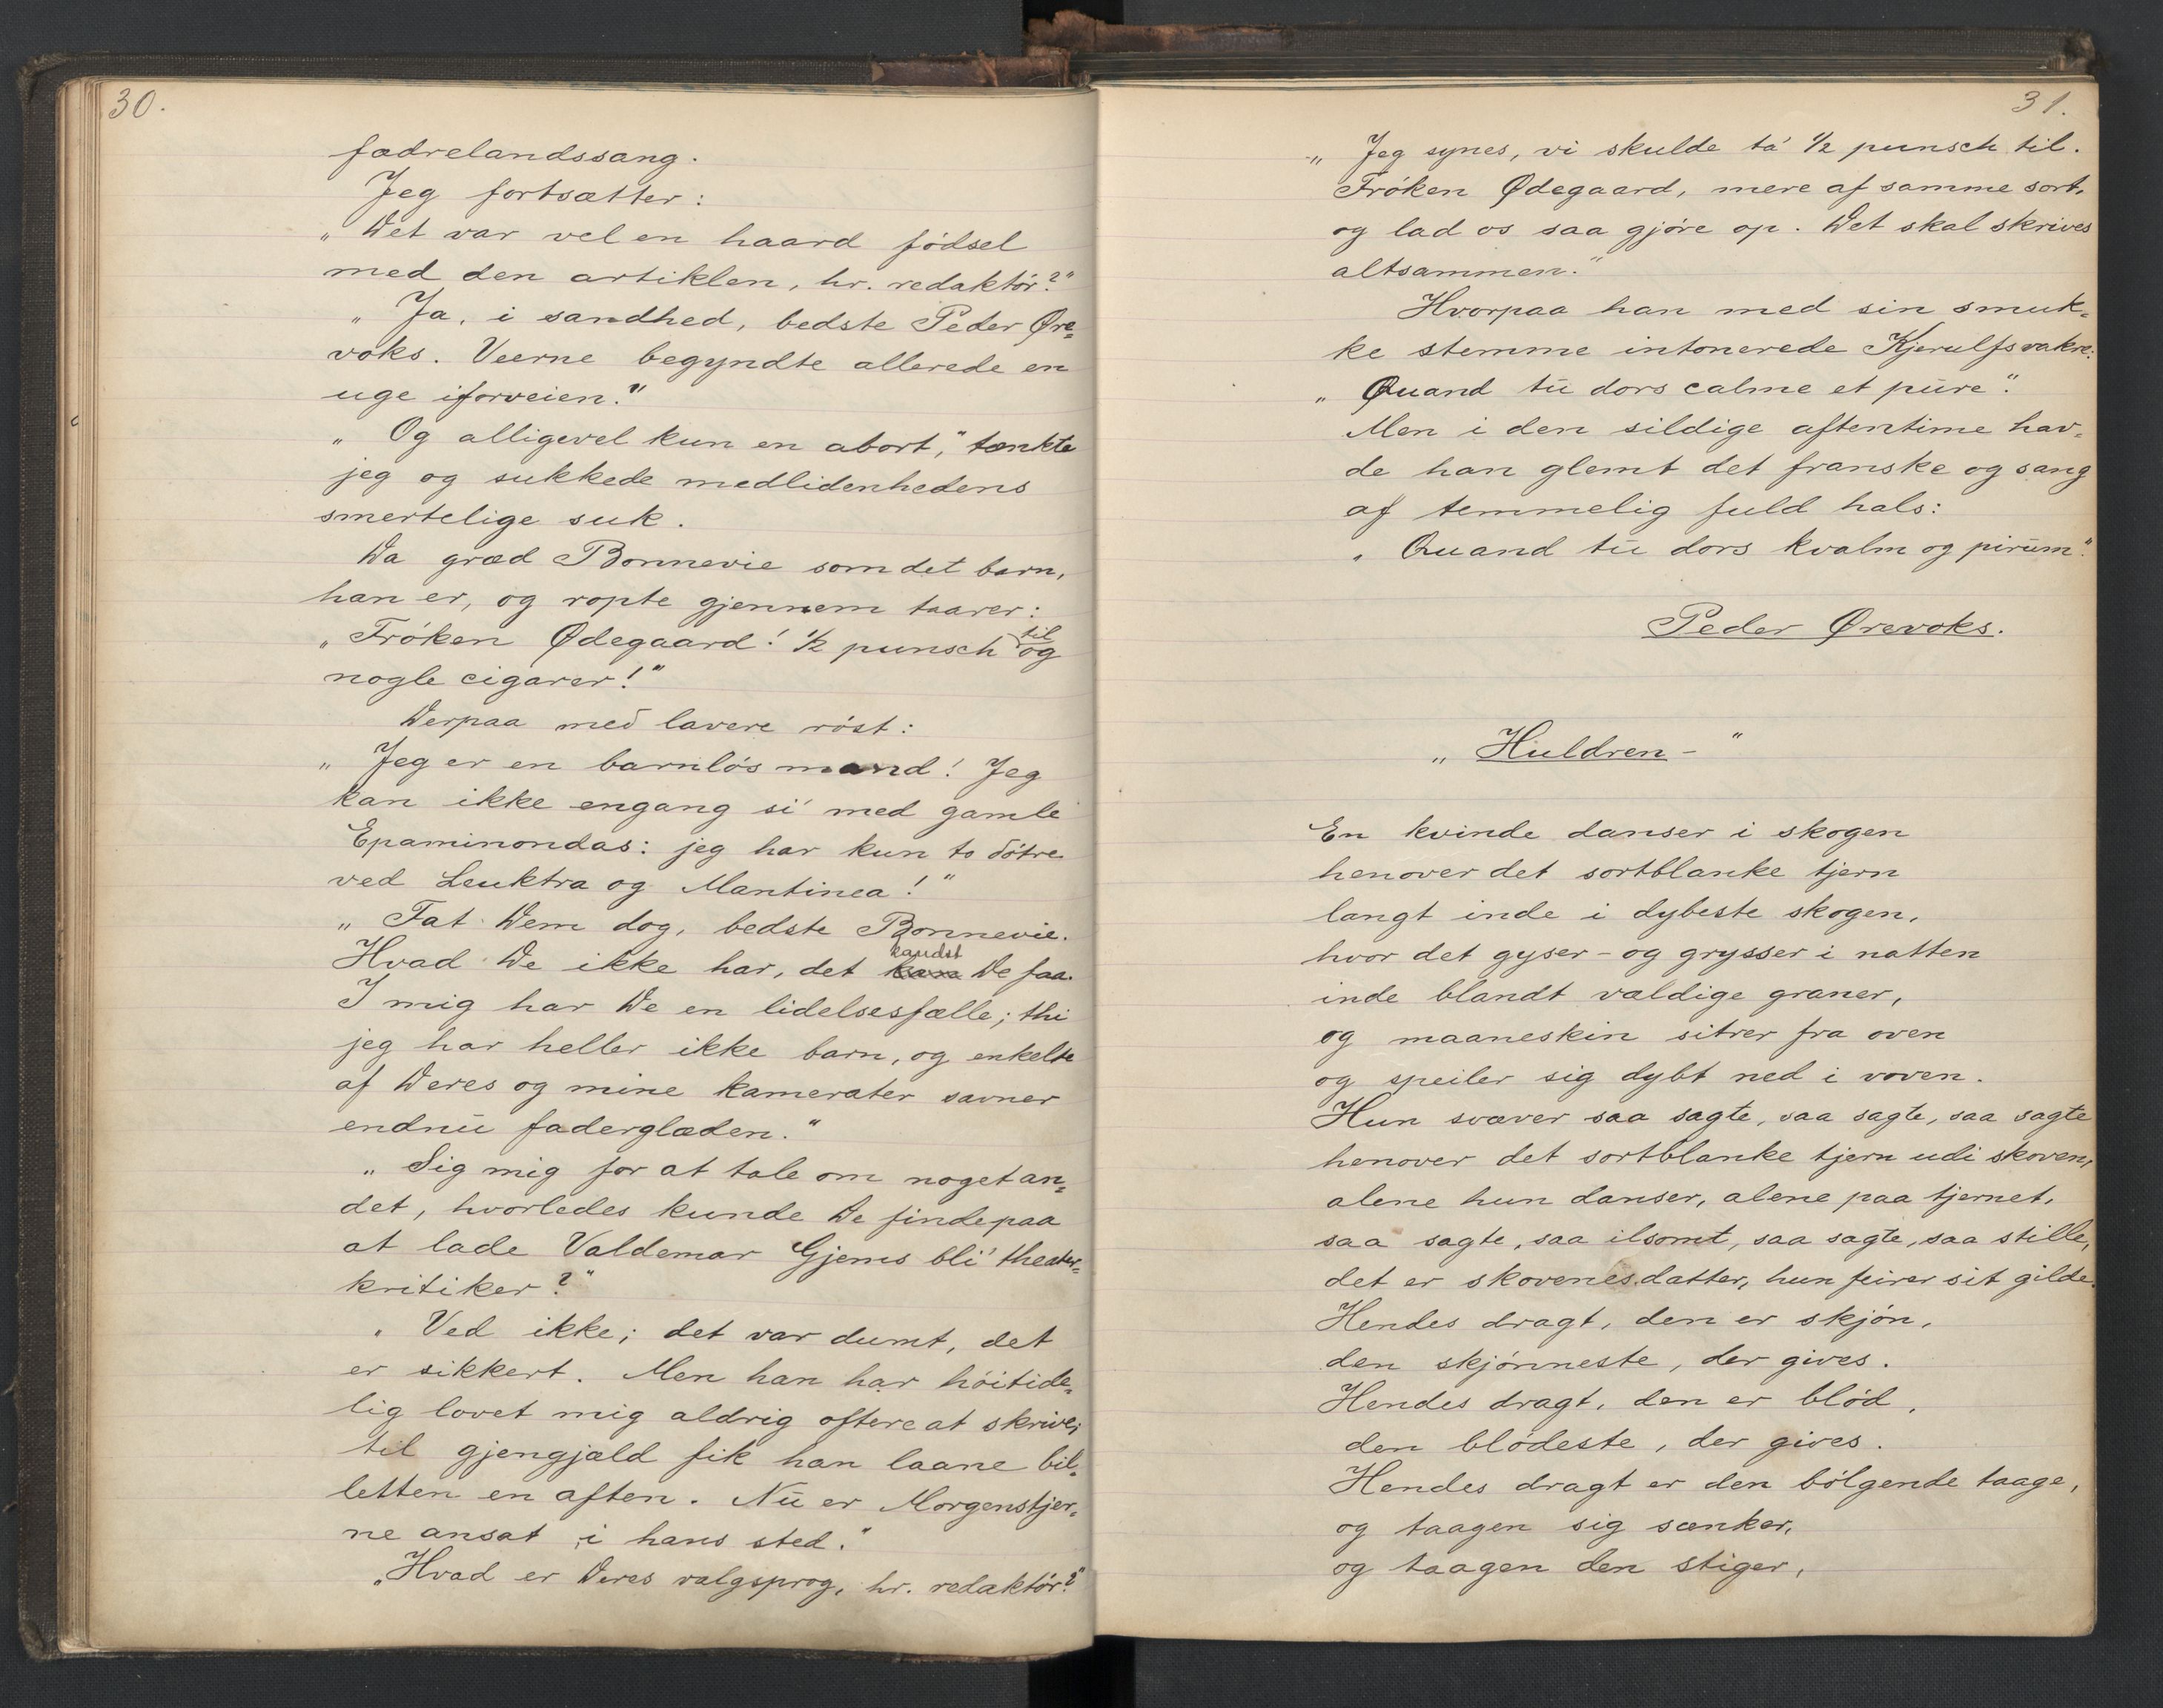 30.
fædrelandssang.
Jeg fortsætter:
„Det var vel en haard fødsel
med den artiklen, hr. redaktør?"
„Ja, i sandhed, bedste Peder Øre=
voks. Veerne begyndte allerede en
uge iforveien."
„Og alligevel kun en abort," tænkte
jeg og sukkede medlidenhedens
smertelige suk.
Da græd Bonnevie som det barn,
han er, og ropte gjennem taarer:
„Frøken Ødegaard! ½ punsch til og
nogle cigarer!"
Derpaa med lavere røst:
„Jeg er en barnløs mand! Jeg
kan ikke engang si' med gamle
Epaminondas: jeg har kun to døtre
ved Leuktra og Mantinea!"
„Fat Dem dog, bedste Bonnevie.
Hvad De ikke har, det kan De faa.
I mig har De en lidelsesfælle; thi
jeg har heller ikke barn, og enkelte
af Deres og mine kamerater savner
endnu faderglæden."
„Sig mig for at tale om noget an=
det, hvorledes kunde De finde paa
at lade Valdemar Gjems bli' theater=
kritiker?"
„Ved ikke; det var dumt, det
er sikkert. Men han har høitide=
lig lovet mig aldrig oftere at skrive;
til gjengjæld fik han laane bil=
letten en aften. Nu er Morgenstjer=
ne ansat i hans sted."
„Hvad er Deres valgsprog, hr. redaktør?"
31.
„Jeg synes, vi skulde ta' ½ punsch til.
Frøken Ødegaard, mere af samme sort,
og lad os saa gjøre op. Det skal skrives
altsammen."
Hvorpaa han med sin smuk=
ke stemme intonerede Kjerulfs vakre:
„Quand tu dors calme et pure".
Men i den sildige aftentime hav=
de han glemt det franske og sang
af temmelig fuld hals:
„Quand tu dors kvalm og pirum".
Peder Ørevoks.
„Huldren-"
En kvinde danser i skogen
henover det sortblanke tjern
langt inde i dybeste skogen,
hvor det gyser- og grysser i natten
inde blandt vældige graner,
og maaneskin sitrer fra oven
og speiler sig dybt ned i voven.
Hun svæver saa sagte, saa sagte, saa sagte
henover det sortblanke tjern udi skoven,
alene hun danser, alene paa tjernet,
saa sagte, saa ilsomt, saa sagte, saa stille,
det er skovenes datter, hun feirer sit gilde.
Hendes dragt, den er skjøn,
den skjønneste, der gives.
Hendes dragt, den er blød,
den blødeste, der gives.
Hendes dragt er den bølgende taage,
og taagen sig sænker,
og taagen den stiger,